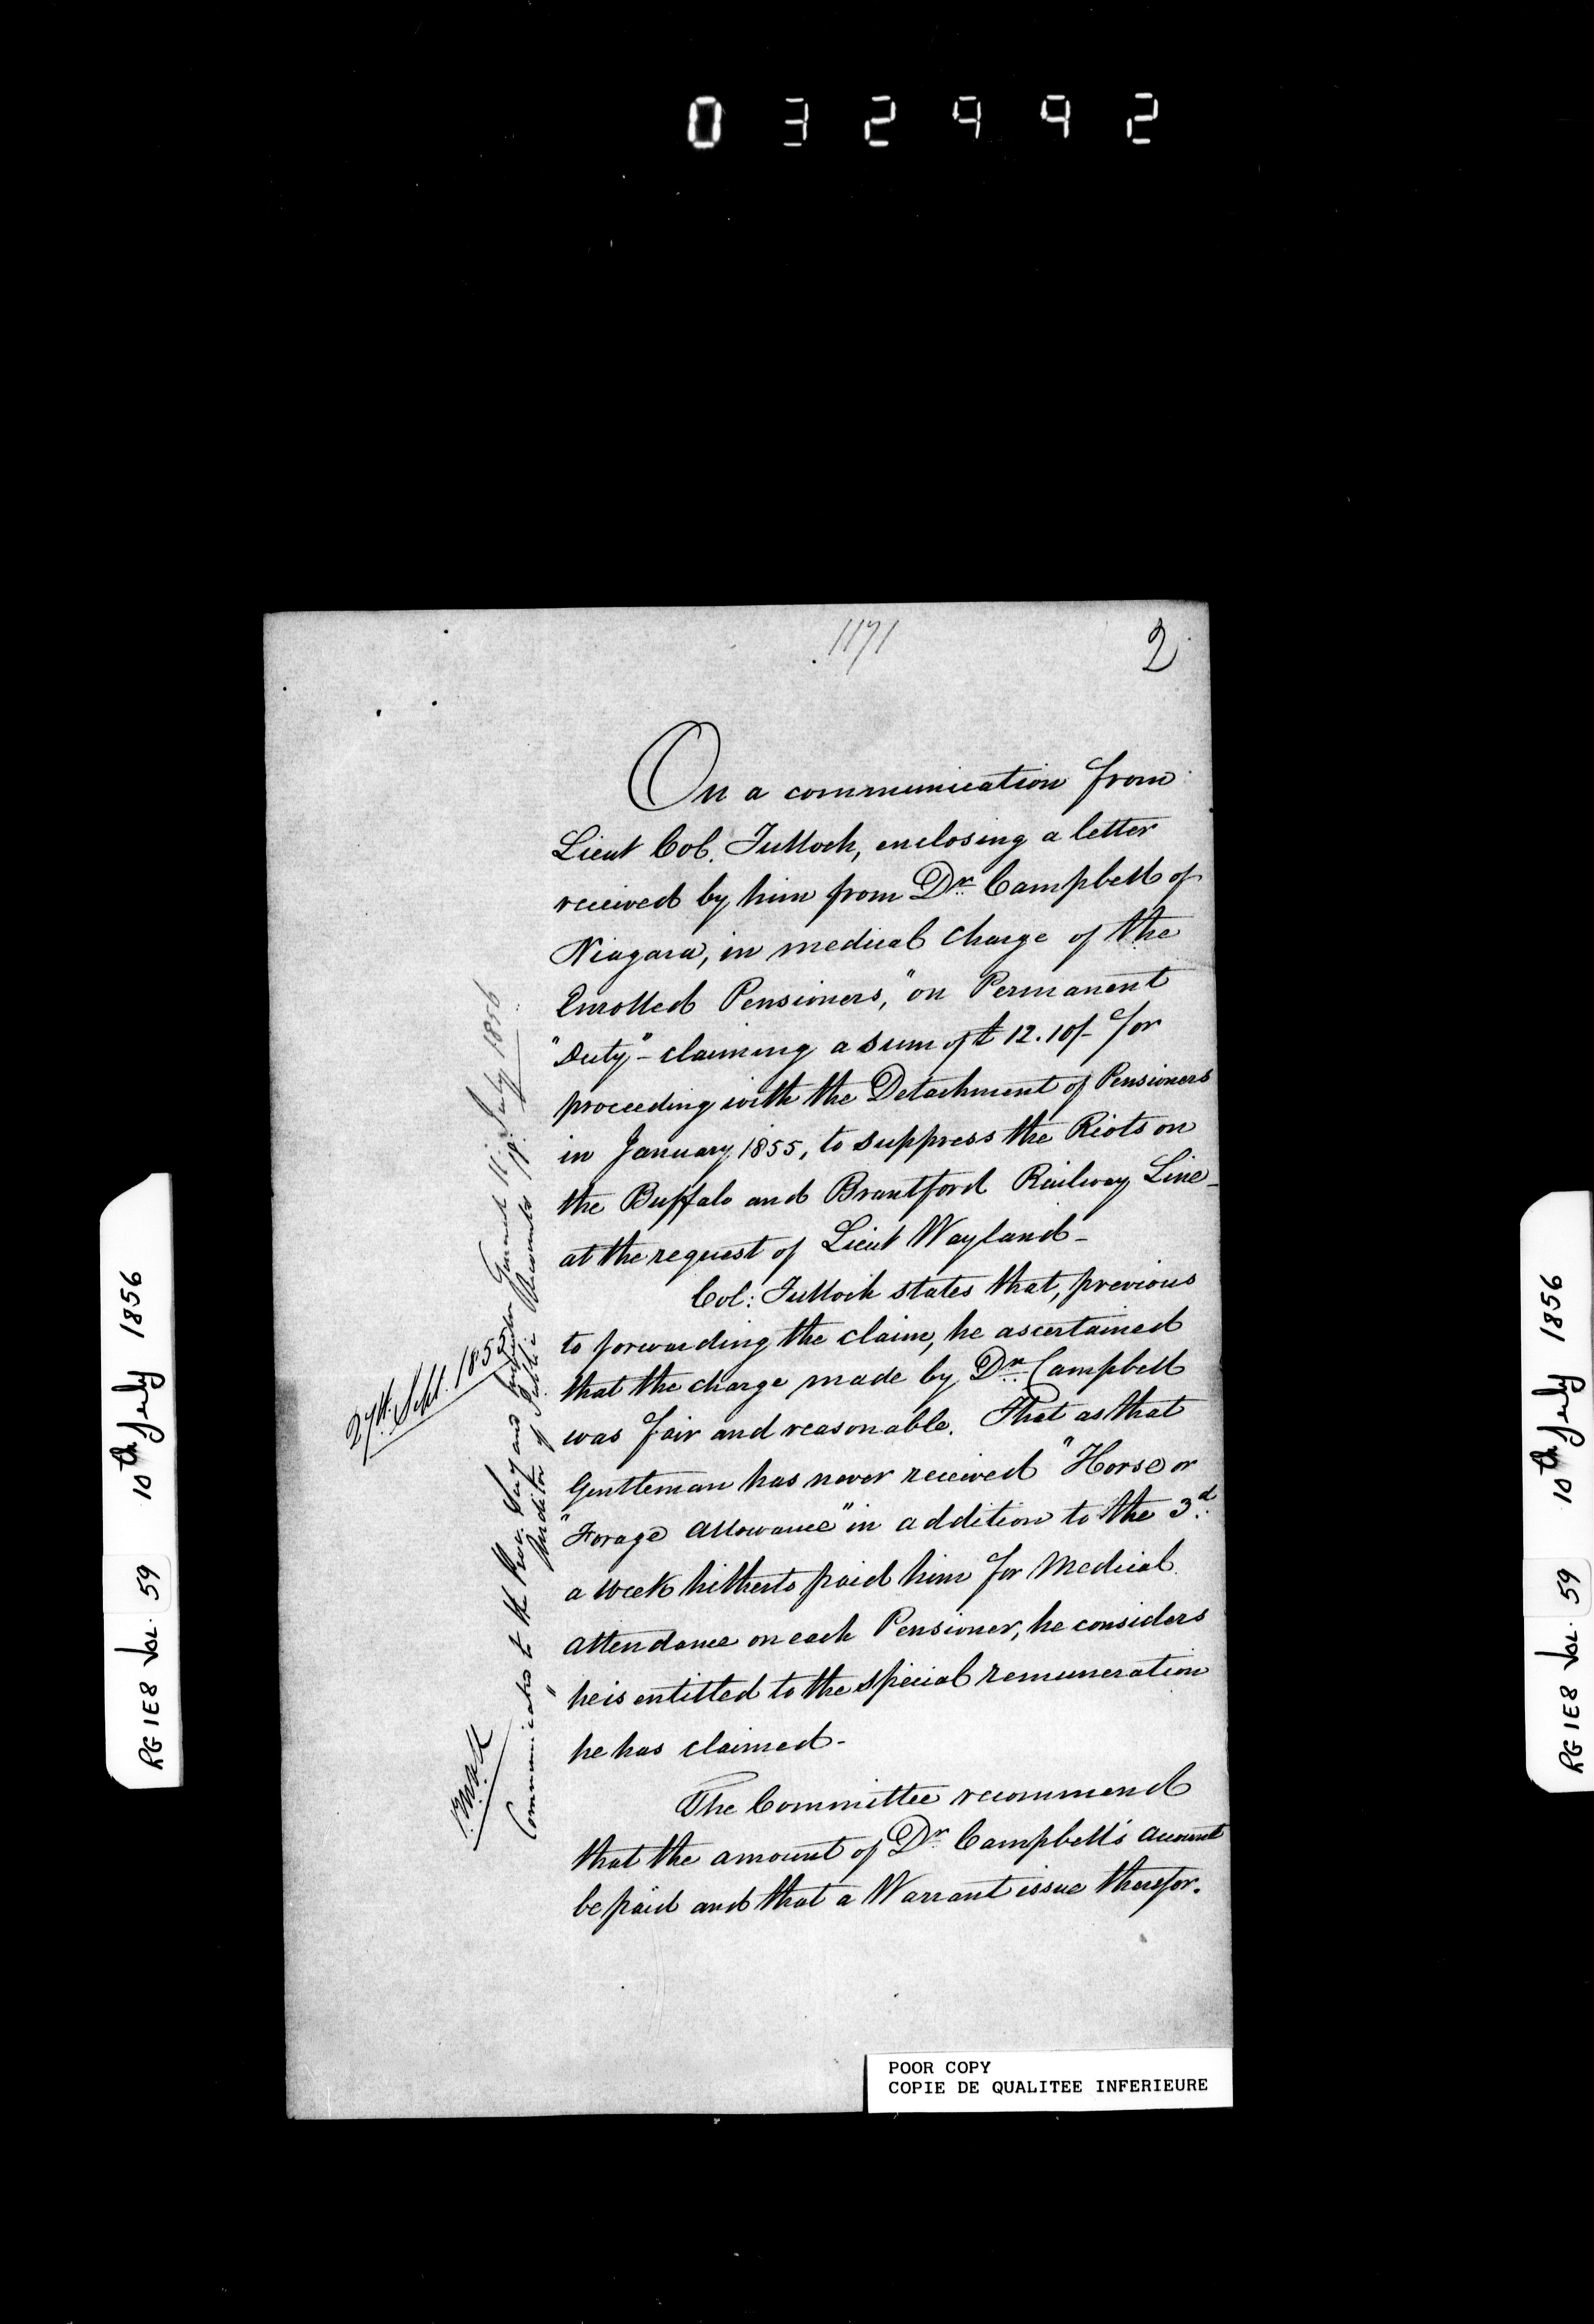 032992
1171
2
On a communication from
Lieut Col. Tulloch, enclosing a letter
received by him from Dr. Campbell of
Niagara, in medical charge of the
Enrolled Pensioners, "on Permanent
"Duty" - claiming a sum of £12.10/- for
proceeding with the Detachment of Pensioners
in January 1855, to suppress the Riots on
the Buffalo and Brantford Railway Line -
at the request of Lieut Wayland -
Col: Tulloch states that, previous
to forwarding the claim, he ascertained
that the charge made by Dr. Campbell
was fair and reasonable. That as that
Gentleman has never received "Horse or
"Forage Allowance" in addition to the 3d.
a week hitherto paid him for Medical
attendance on each Pensioner, he considers
he is entitled to the special remuneration
he has claimed -
The Committee recommend
that the amount of Dr. Campbell's account
be paid and that a Warrant issue therefor.
27th. Sept. 1855
Communicated to the Prov. Secy and Inspector General 11. July 1856
" Auditor of Public Accounts
POOR COPY
COPIE DE QUALITEE INFERIEURE
RG 1E8 Vol. 59 10th July 1856
RG 1E8 Vol. 59 10th July 1856